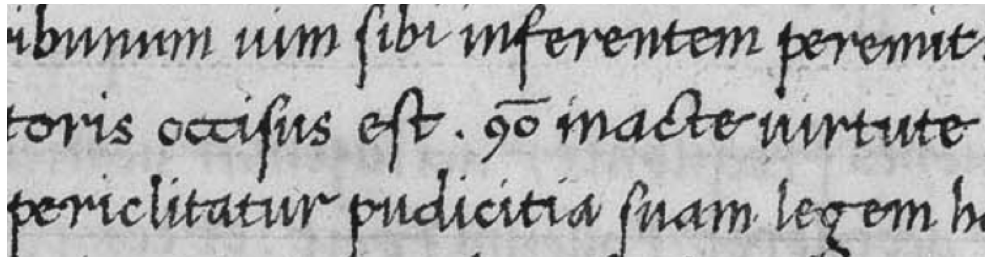 ibunum uim sibi inferentem peremit.
toris occisus est. 9o̅ macte uirtute
periclitatur pudicitia suam legem ha